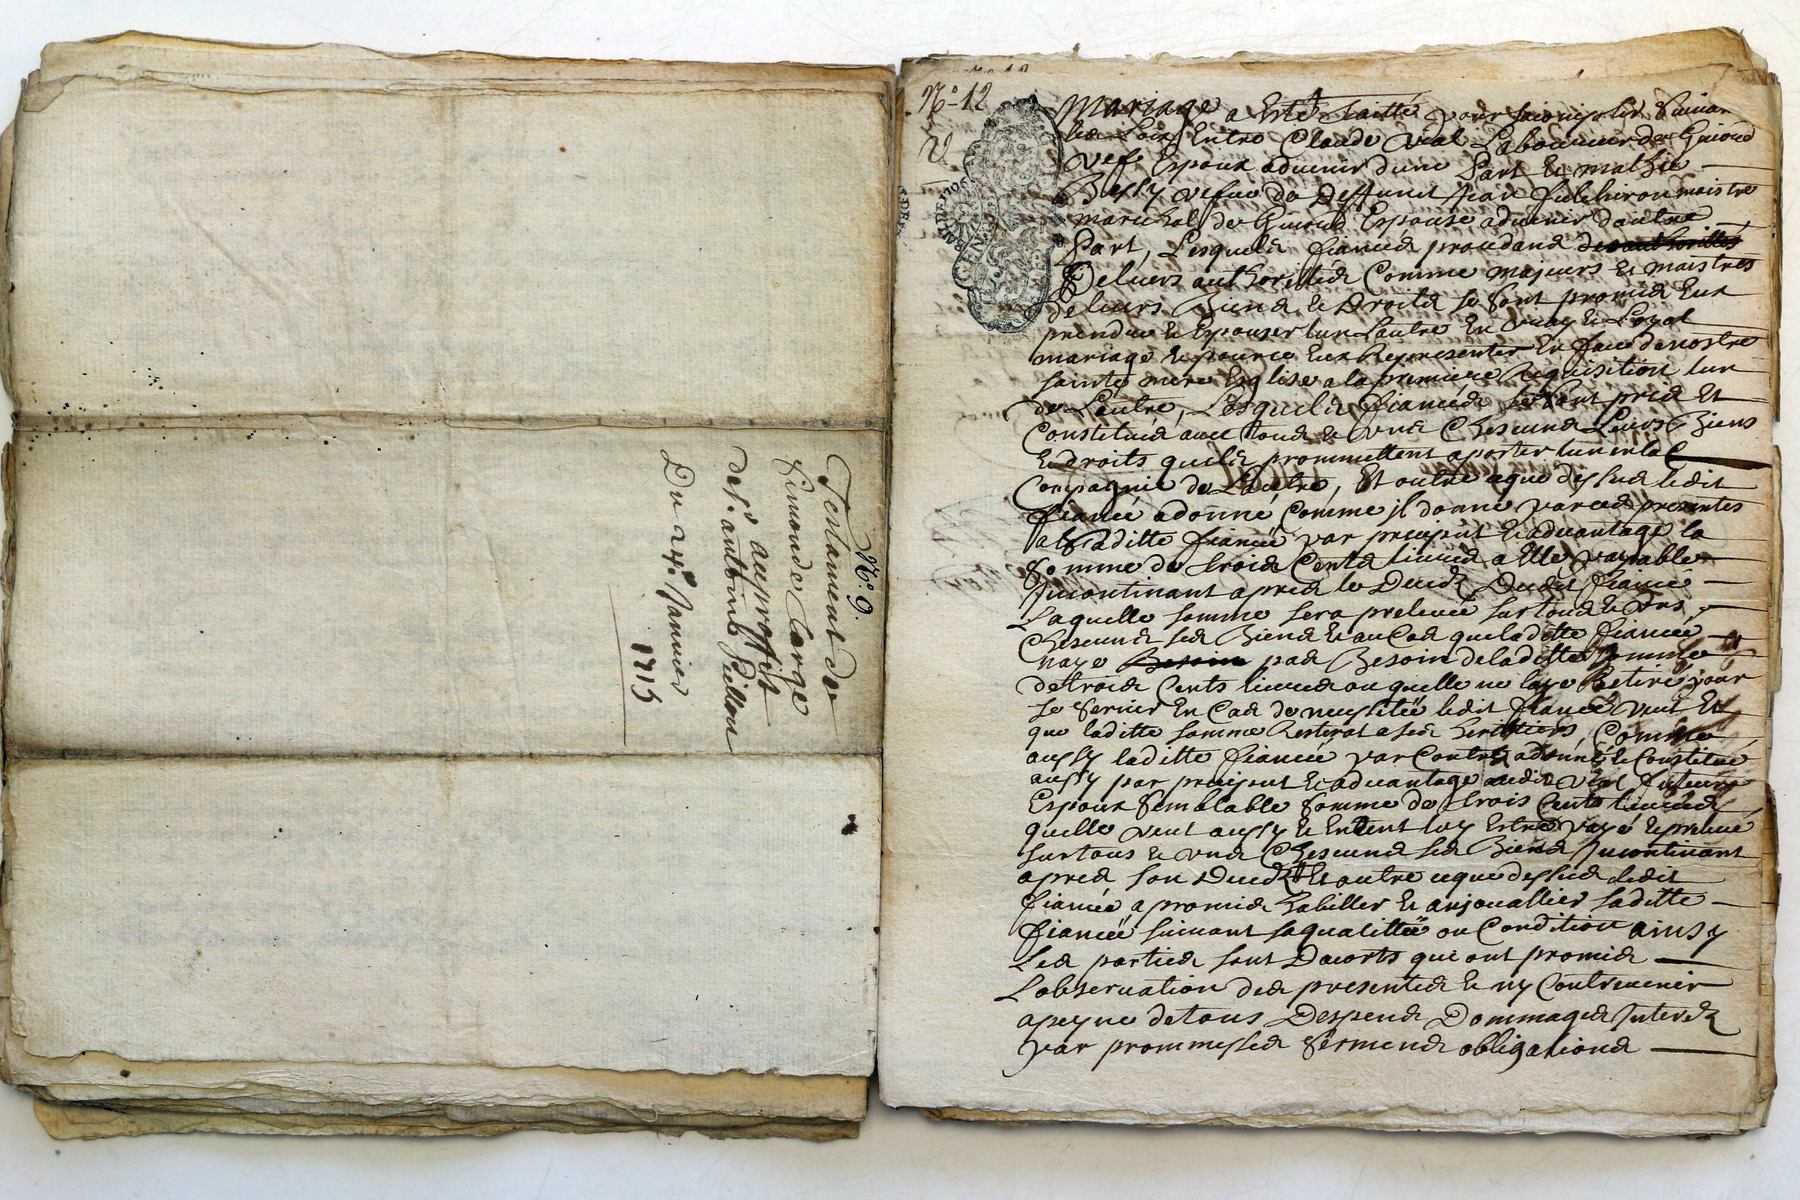 N.° 9.
Testament de
Simonde Large
au proffit
de s.r anthoine Pillou
Du 24.e Janvier
1715
N.° 12
Mariage a Esté traitté pour saccomplir suivan
les Loix Entre Claude Vial Laboureur de
vef. Espoux advenir dune Part & mathie
Bussy vefue de Deffunct Jean fulchiron maistre
mareschal de Espouse advenir dautre
Part, Lesquels fiancés procedans
De leurs authorittés Comme majeurs & maistres
de leurs Biens & Droits se sont promis Eux
prendre & Epouser lun Lautre En vray & Loyal
mariage & pource Eux Representer En face de nostre
sainte mere Esglise a la premiere Requisition lun
de Lautre, Lesquels fiancés se sont pris Et
Constitués avec tous & vns Chescuns Leurs Biens
& droits quils promettent aporter lun en la
Compagnie de Lautre, Et outre ceque dessus ledit
fiancé a donné Comme jl donne par ces presentes
a laditte fiancée par preciput & advantage la
somme de trois Cents livres a Elle payable
jncontinant apres le Deceds Dudit fiancé
Laquelle somme sera prelevée sur tous & vns
Chescuns ses Biens & au Cas que laditte fiancée
naye pas Besoin de laditte somme
de trois Cents livres ou quelle ne laye Retiré pour
se servir En Cas de necessitée ledit fiancé veut Et
que laditte somme Resterat a ses heritiers, Comme
aussy laditte fiancée par Contre a donné & Constitué
aussy par preciput & advantage audit Vial futeur
Espoux semblable somme de trois Cents livres
quelle veut aussy & Entent luy Estre payé & prelevé
sur tous & vns Chescuns ses Biens jncontinant
apres son Deceds Et outre ceque dessus ledit
fiancé a promis habiller & anjouallier laditte
fiancée suivant sa qualittée ou Condition ainsy
Les parties sont Dacorts qui ont promis
Lobservation des presentes & ny Contrevenir
a peyne de tous Despens Dommages Interets
par prommesses sermens obligations